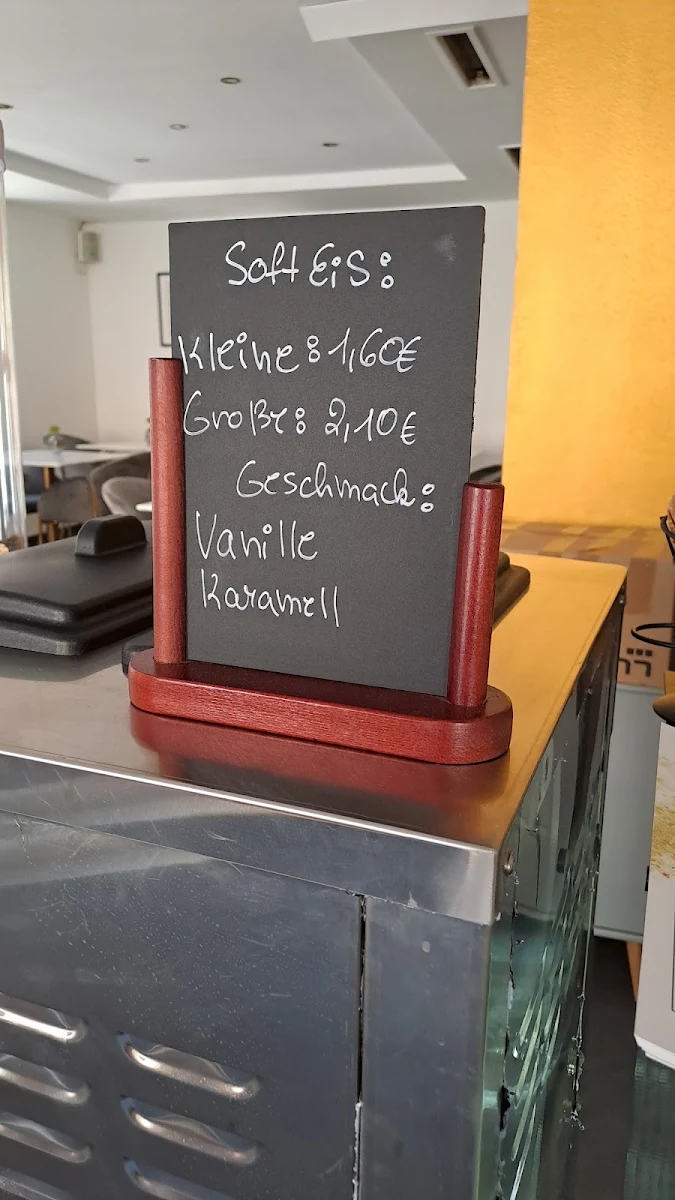 Soft Eis:
Kleine: 1,60€
Große: 2,10€
Geschmack:
Vanille
Karamell